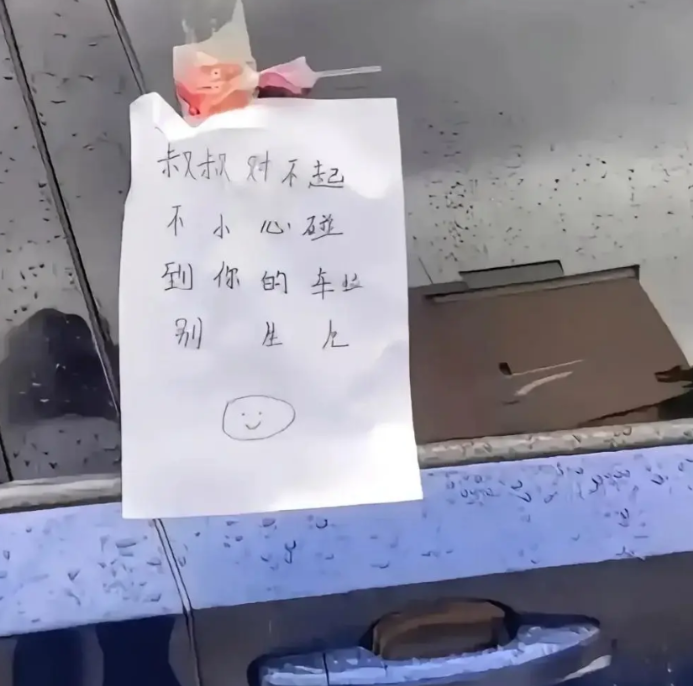 叔叔对不起
不小心碰
到你的车
别生气